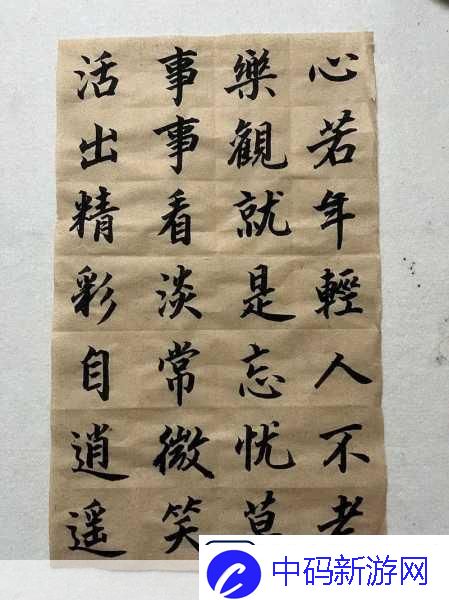 心若年輕人不老
樂觀就是忘忧草
事事看淡常微笑
活出精彩自逍遥
中码新游网